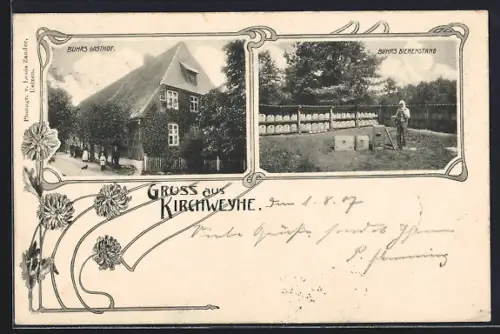 Photogr. v. Louis Zander,
Uelzen.
BUHRS GASTHOF.
BUHRS BIENENSTAND
GRUSS AUS
KIRCHWEYHE.
den 1. 8. 07
Viele Grüße sendet Ihnen
P. Flemming